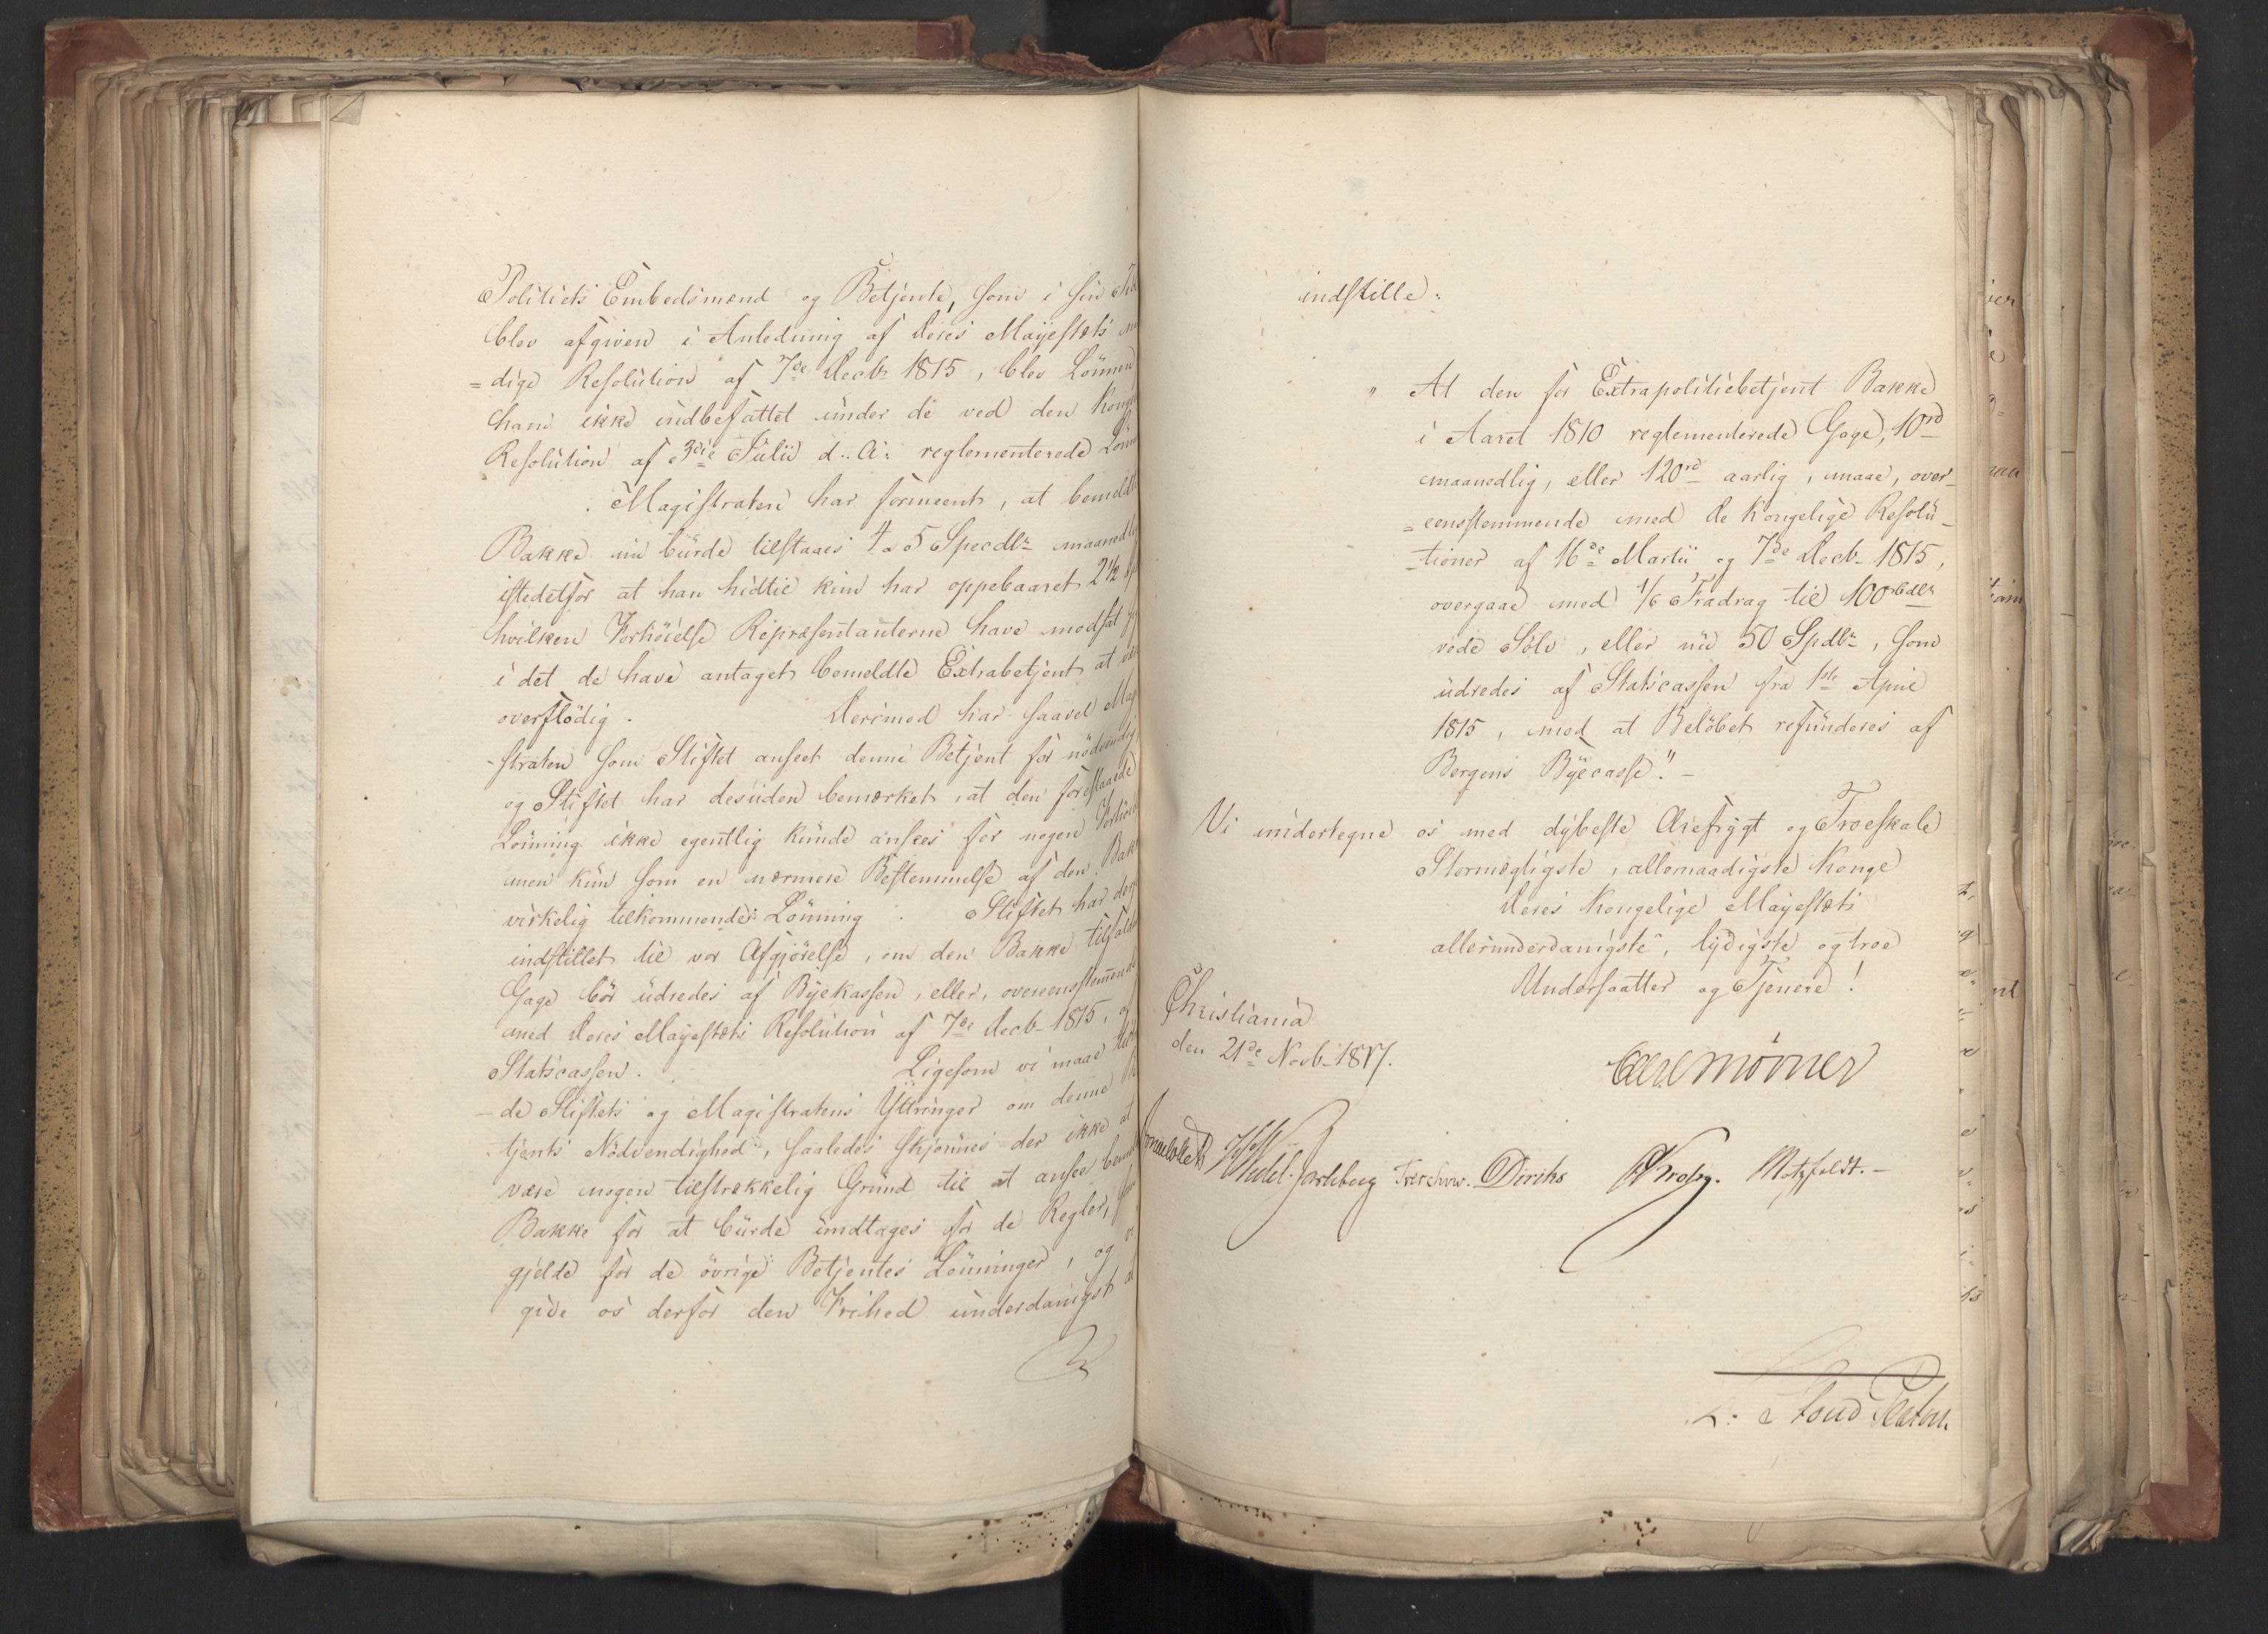 Politiets Embedsmænd og Betjente, som i sin Tid
blev afgiven i Anledning af Deres Mayestets
=dige Resolution af 7de Decb: 1815, blev Lönnen
ham ikke indbefattet under de ved den Kongel
Resolution af 3die Julii d. A: reglementerede Lönn
Magistraten har formeent, at bemeldte
Bakke nu burde tilstaaes 4 a 5 Specdlr maanedlig
istedetfor at han hidtil kun har oppebaaret 2½
hvilken Forhöielse Repræsentanterne have modsat
i det de have antaget bemeldte Extrabetjent at
overflödig. Derimod har saavel Mag
-straten som Stiftet anseet denne Betjent for nödvendig
og Stiftet har desuden bemærket, at den foreslaaede
Lönning ikke egentlig kunde ansees for nogen Forhöi
men kun som en nærmere Bestemmelse af den Bakke
virkelig tilkommende Lönning. Stiftet har der
indstillet til vor Afgjörelse, om den Bakke tilfaldne
Gage bör udredes af Byekassen, eller, overeensstemmende
med Deres Mayestets Resolution af 7de Decb 1815, af
Statscassen. Ligesom vi maae
-de Stiftets og Magistratens Yttringer om denne
tjents Nödvendighed, saaledes skjönnes der ikke at
være nogen tilstrækkelig Grund til at ansee
Bakke for at burde undtages for de Regler,
gjelde for de övrige Betjentes Lönninger, og vi
give os derfor den Frihed underdanigst at
indstille:
" At den for Extrapolitiebetjent Bakke
i Aaret 1810 reglementerede Gage, 10rd
maanedlig, eller 120rd aarlig, maae, over-
=eensstemmende med de Kongelige Resolu-
-tioner af 16de Martii og 7de Decb. 1815,
overgaae med 1/6 Fradrag til 100 rbdlr
rede Sölv, eller nu 50 Spdlr, som
udredes af Statscassen fra 1ste April
1815, mod at Belöbet refunderes af
Bergens Byecasse". -
Vi undertegne os med dybeste Ærefrygt og Troeskab
Stormægtigste, allernaadigste Konge
Deres Kongelige Mayestets
allerunderdanigste, lydigste og troe
Undersaatter og Tjenere!
Christiania
den 21de Novb. 1817.
Carl Mörner
Sommelhielm HWedel-Jarlsberg Treschow. Diriks Krog. Motzfeldt. -